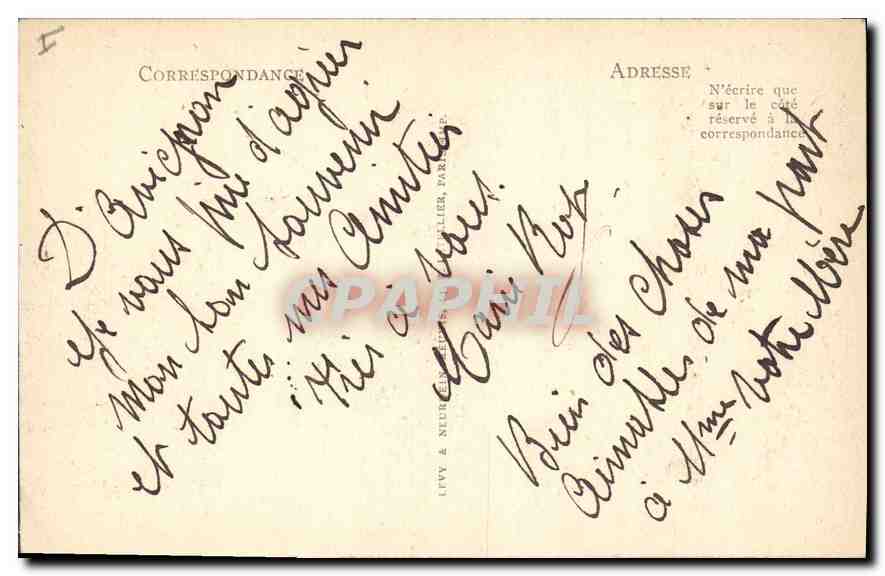 CORRESPONDANCE
ADRESSE
N'écrire que
sur le côté
réservé à la
correspondance
D'Avignon
je vous prie d'agréer
mon bon souvenir
et toutes mes amitiés
Très à vous.
Marie
Bien des choses
aimables de ma part
à Mme votre Mère
LEVY & NEURDEIN REUNIS, PARIS
CPAPHIL